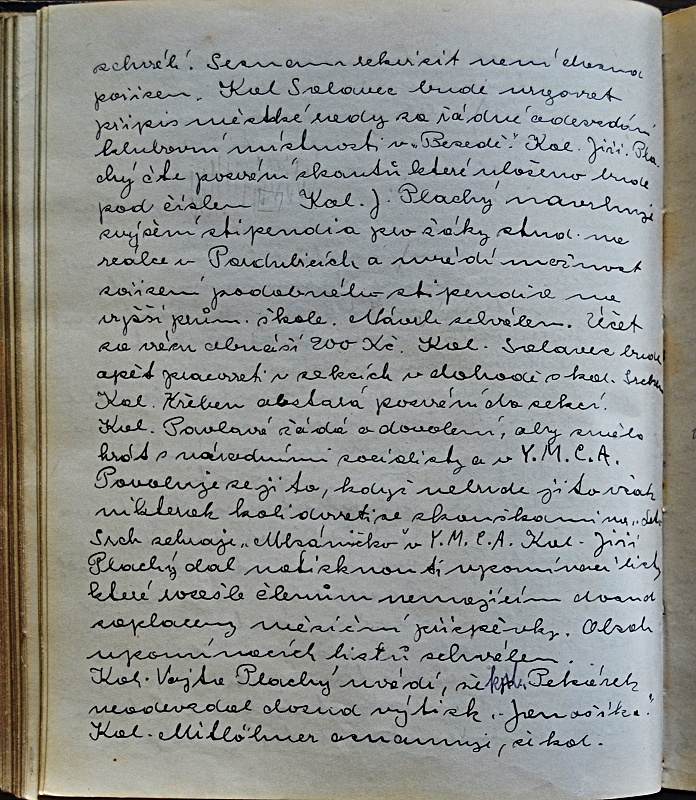 schválí. Seznam rekvisit není dosud
pořízen. Kol Salavec bude urgovat
přípis městské rady za řádné odevzdání
klubovní místnosti v „Besedě“. Kol. Jiří. Pla-
chý čte pozvání skautů, které uloženo bude
pod číslem Kol. J. Plachý navrhuje
zvýšení stipendia pro žáky stud. na
reálce v Pardubicích a uvádí možnost
zařízení podobného stipendia na
vyšší prům. škole. Návrh schválen. Účet
za revu obnáší 200 Kč. Kol. Salavec bude
opět pracovati v sekcích v dohodě s kol. Srchem
Kol. Křeben obstará pozvání do sekcí.
Kol. Pavlová žádá o dovolení, aby směla
hrát s národními socialisty a v Y.M.C.A.
Povoluje se jí to, když nebude jí to však
nikterak kolidovati se zkouškami na
Srch sehraje „Mlsáníčko“ v Y.M.C.A. Kol. Jiří
Plachý dal natisknouti upomínací listy
které rozešle členům nemajícím dosud
zaplaceny měsíční příspěvky. Obsah
upomínacích listů schválen.
Kol. Vojta Plachý uvádí, že kpt. Pekárek
neodevzdal dosud výtisk „Janošíka“.
Kol. Mitlöhner oznamuje, že kol.